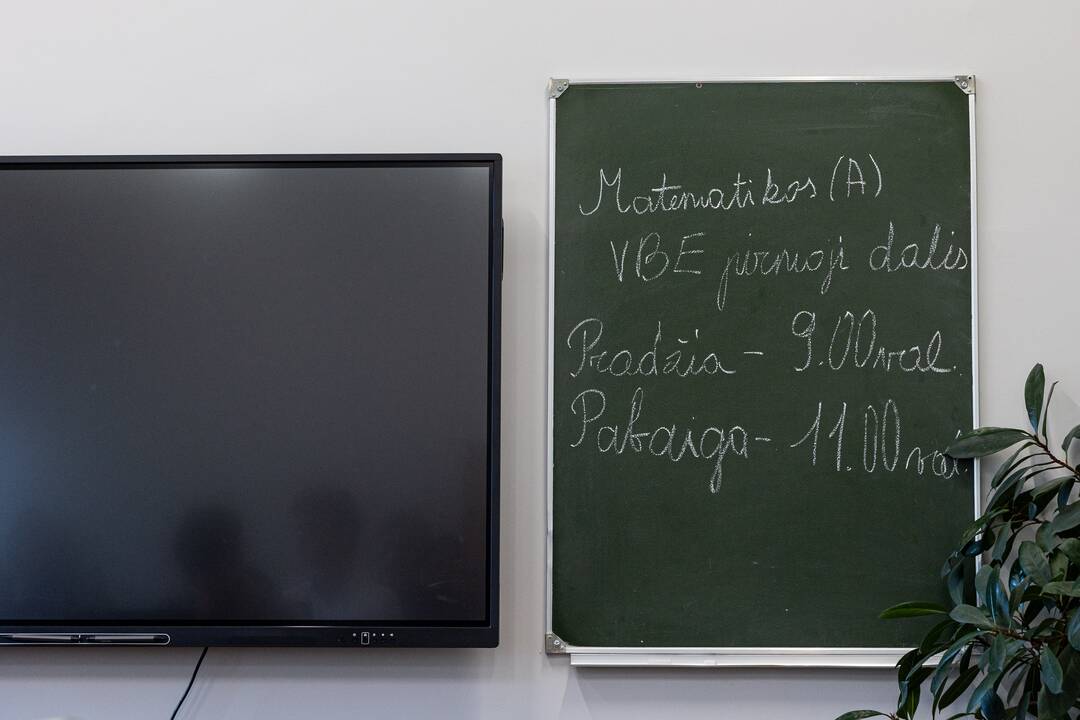 Matematikos (A)
VBE pirmoji dalis
Pradžia – 9.00 val.
Pabaiga – 11.00 val.